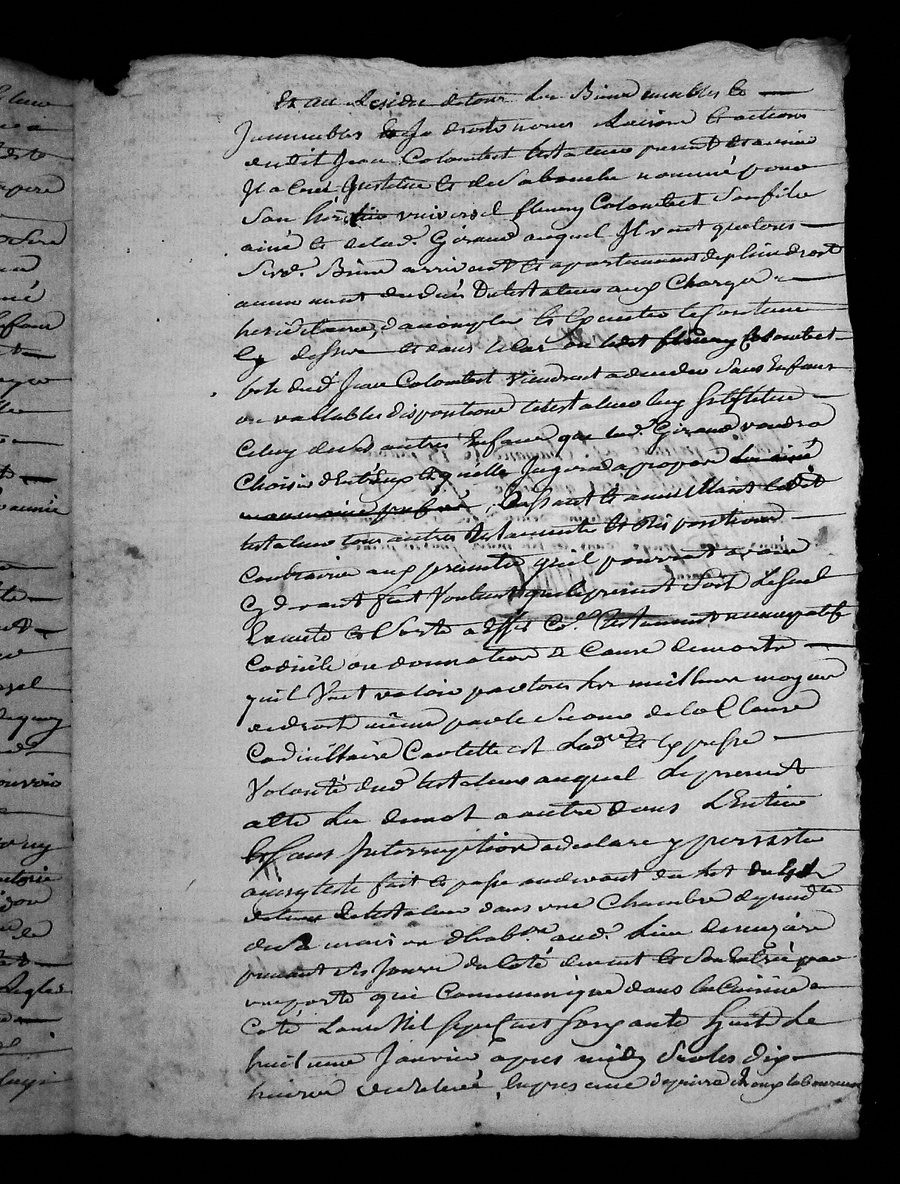 Et au Residu de tous les Biens meubles et
Immeubles et droits noms Raisons et actions
dudit Jean Colombet testateur present et avenir
Il a Créé Institué et de sa bouche nommé pour
Son héritier universel fleury Colombet Son fils
ainé et de lad. Giraud auquel Il veut que tous
Sesd. Biens arrivent et apartiennent de plein droit
au moment du déces Du testateur aux Charges
hereditaires, d'acomplir et Executer le Contenu
Cy dessus et dans le Cas ou ledit fleury Colombet
dud. Jean Colombet viendroit a deceder Sans Enfans
ou vallables dispositions le testateur luy Substitue
Celuy de Ses autres Enfans que lad. Giraud voudra
Choisir d'Entreux et quelle Jugera a propos
Cassant et annullant ledit
testateur tous autres Testaments et dispositions
Contraires aux presentes quil pourroit avoir
Cy devant fait Voulant que le present Soit Le Seul
Execute et Sorte a Effet Co. Testament nuncupatif
Codicile ou donnation a Cause de mort
quil Veut valoir par tous les meilleurs moyens
de droit même par le Secours de la Clause
Codicillaire Car telle est Lad. et Expresse
Volonté dud. testateur auquel Le present
acte Lu de mot a autre dans L'Entier
et Sans Interruption a declaré y persister
ainsy testé fait et passé audevant du lit
du testateur dans une Chambre dependte
de Sa maison d'habon. aud. Lieu de
prenant Ses Jours du Coté de vent et Son Entrée par
une porte qui Communique dans la Cuisine a
Coté L'an Mil Sept Cent Soixante huit Le
huitieme Janvier apres midy Sur les dix
heures du Relevé, En presence de pierre laboureur